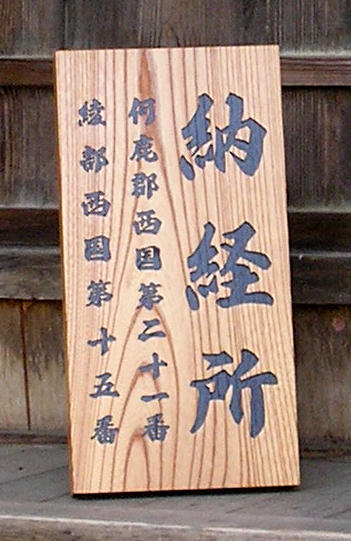 納経所
何鹿郡西国第二十一番
綾部西国第十五番